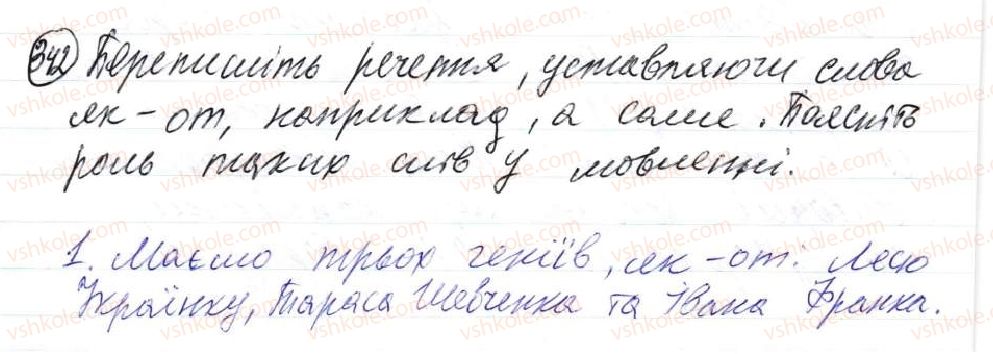 342 Перепишіть речення, уставляючи слова
як-от, наприклад, а саме. Поясніть
роль таких слів у мовленні.
1. Маємо трьох геніїв, як-от: Лесю
Українку, Тараса Шевченка та Івана Франка.